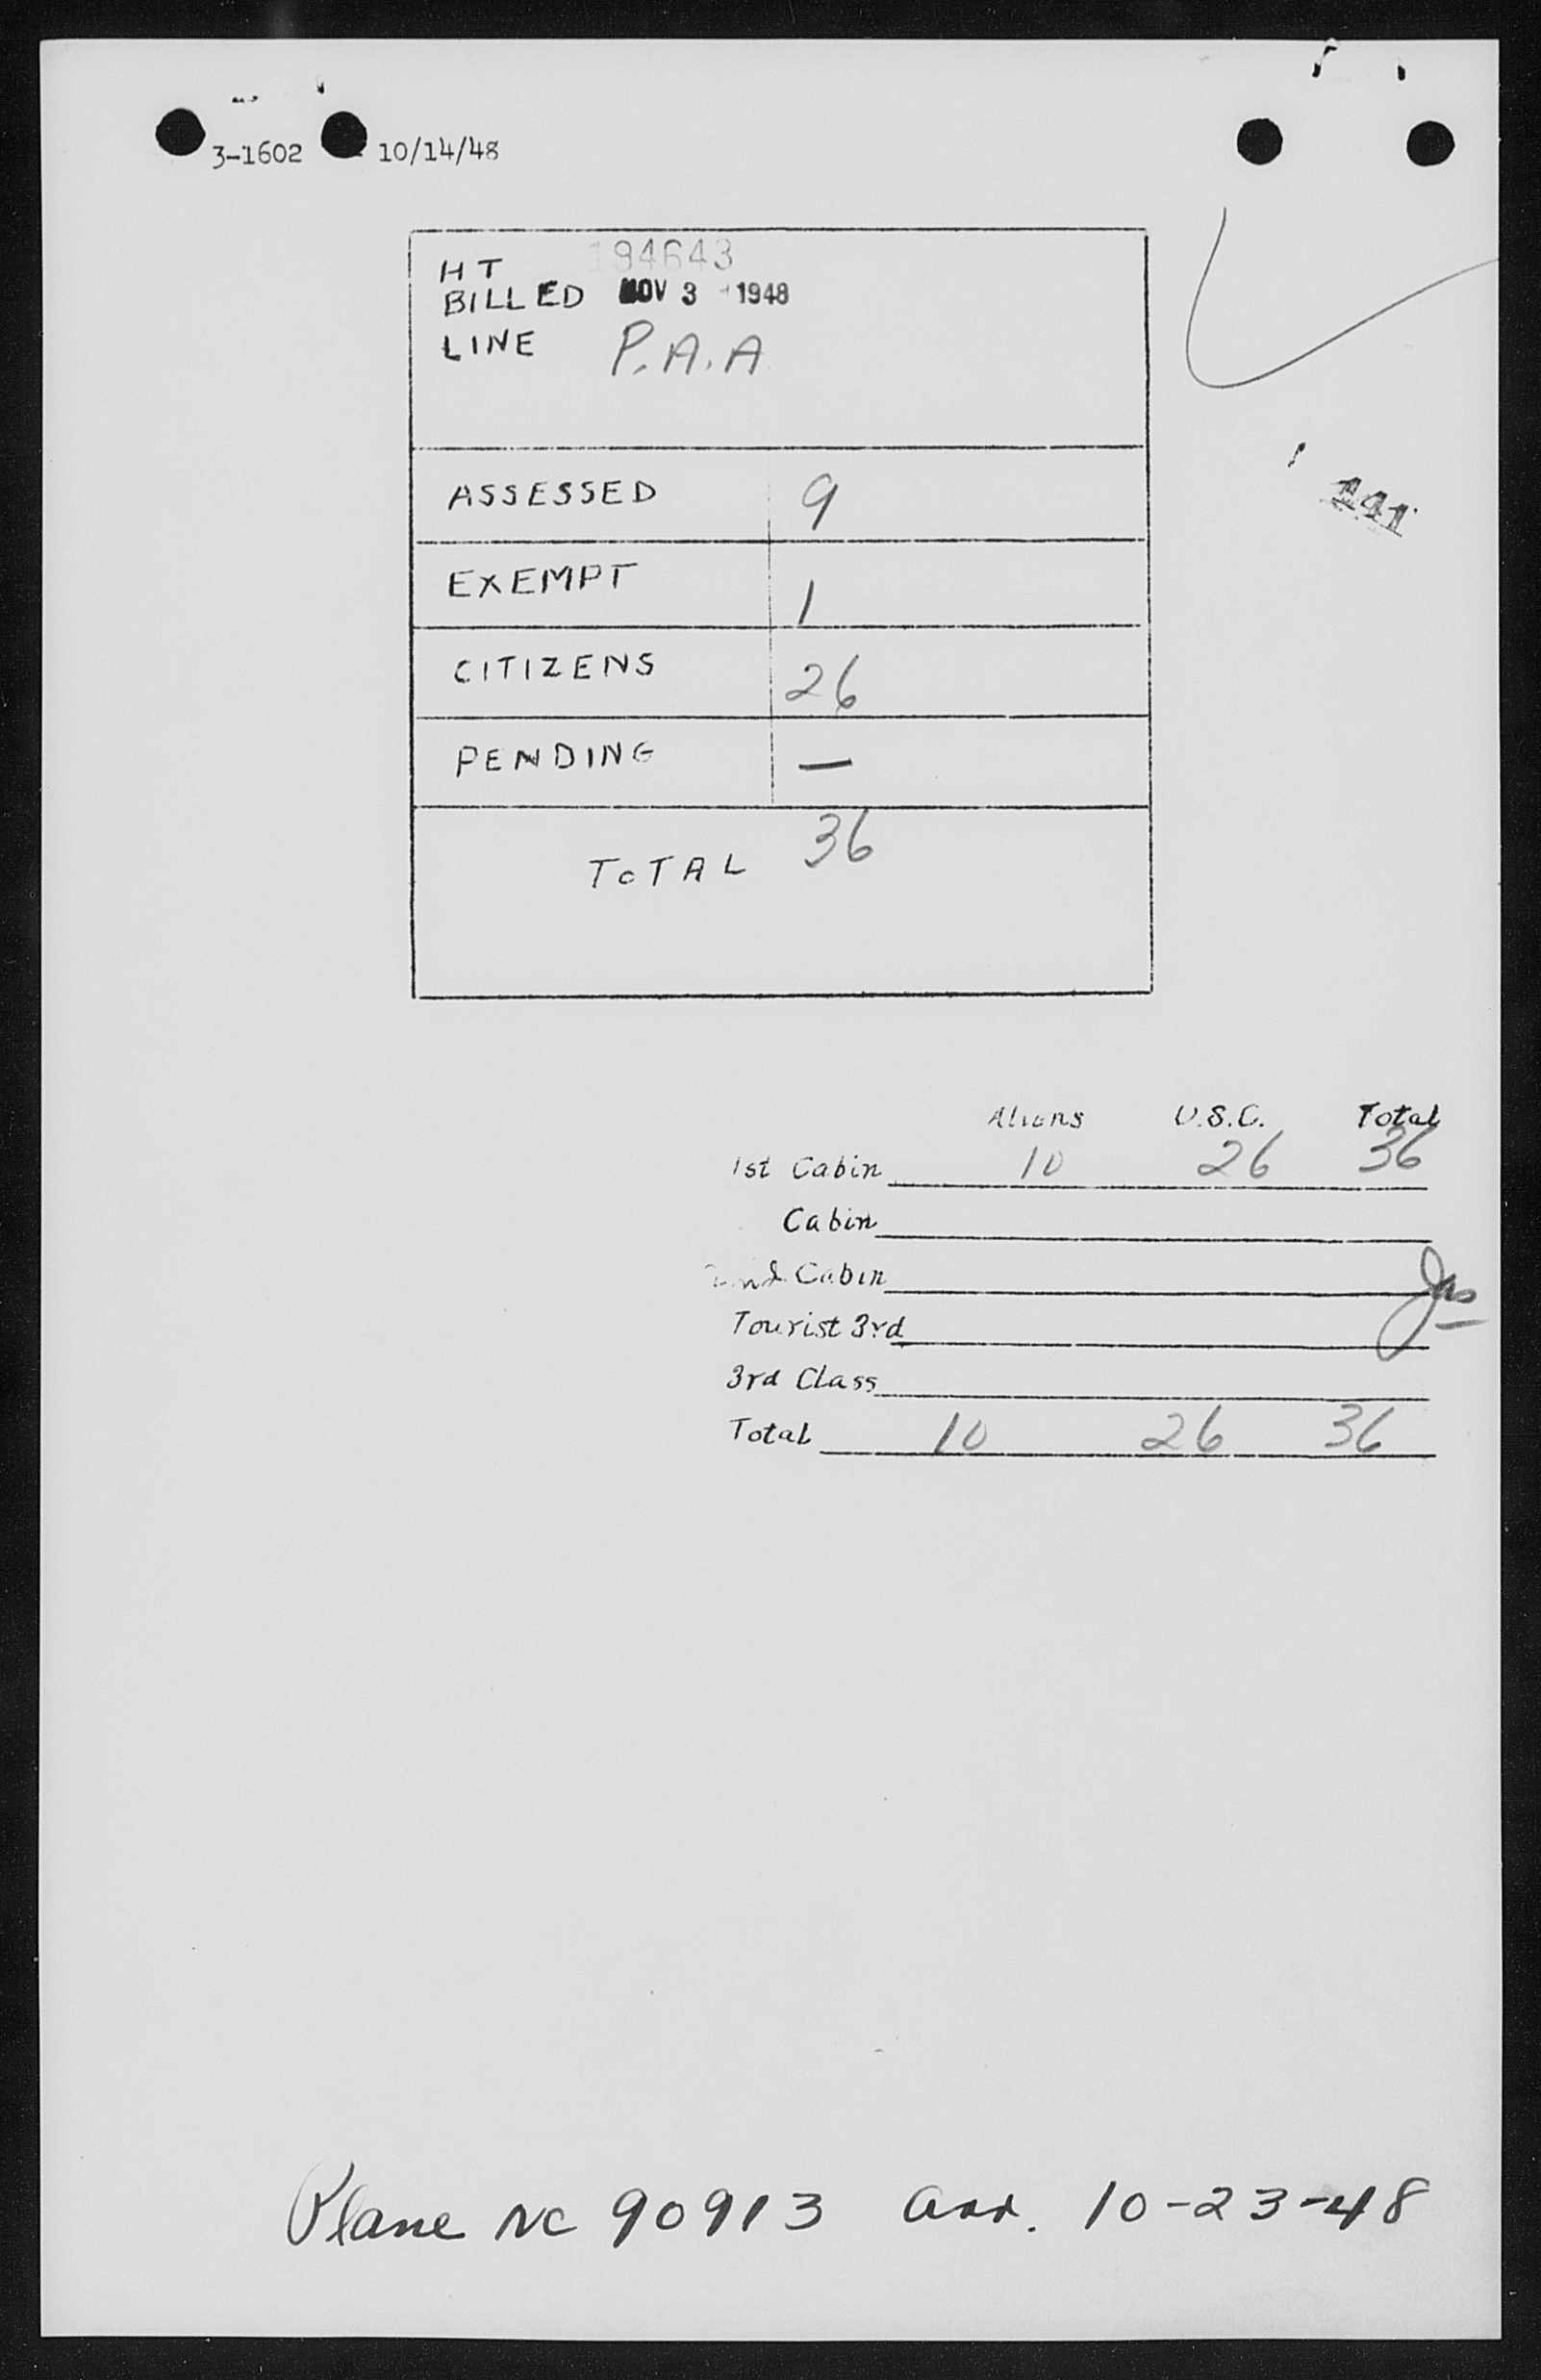 3-1602 10/14/48
194643
HT
BILLED NOV 3 1948
LINE P.A.A
141
ASSESSED 9
EXEMPT 1
CITIZENS 26
PENDING —
TOTAL 36
Aliens U.S.C. Total
1st Cabin 10 26 36
Cabin
2nd Cabin
Tourist 3rd
3rd Class
Total 10 26 36
Plane NC 90913 arr. 10-23-48